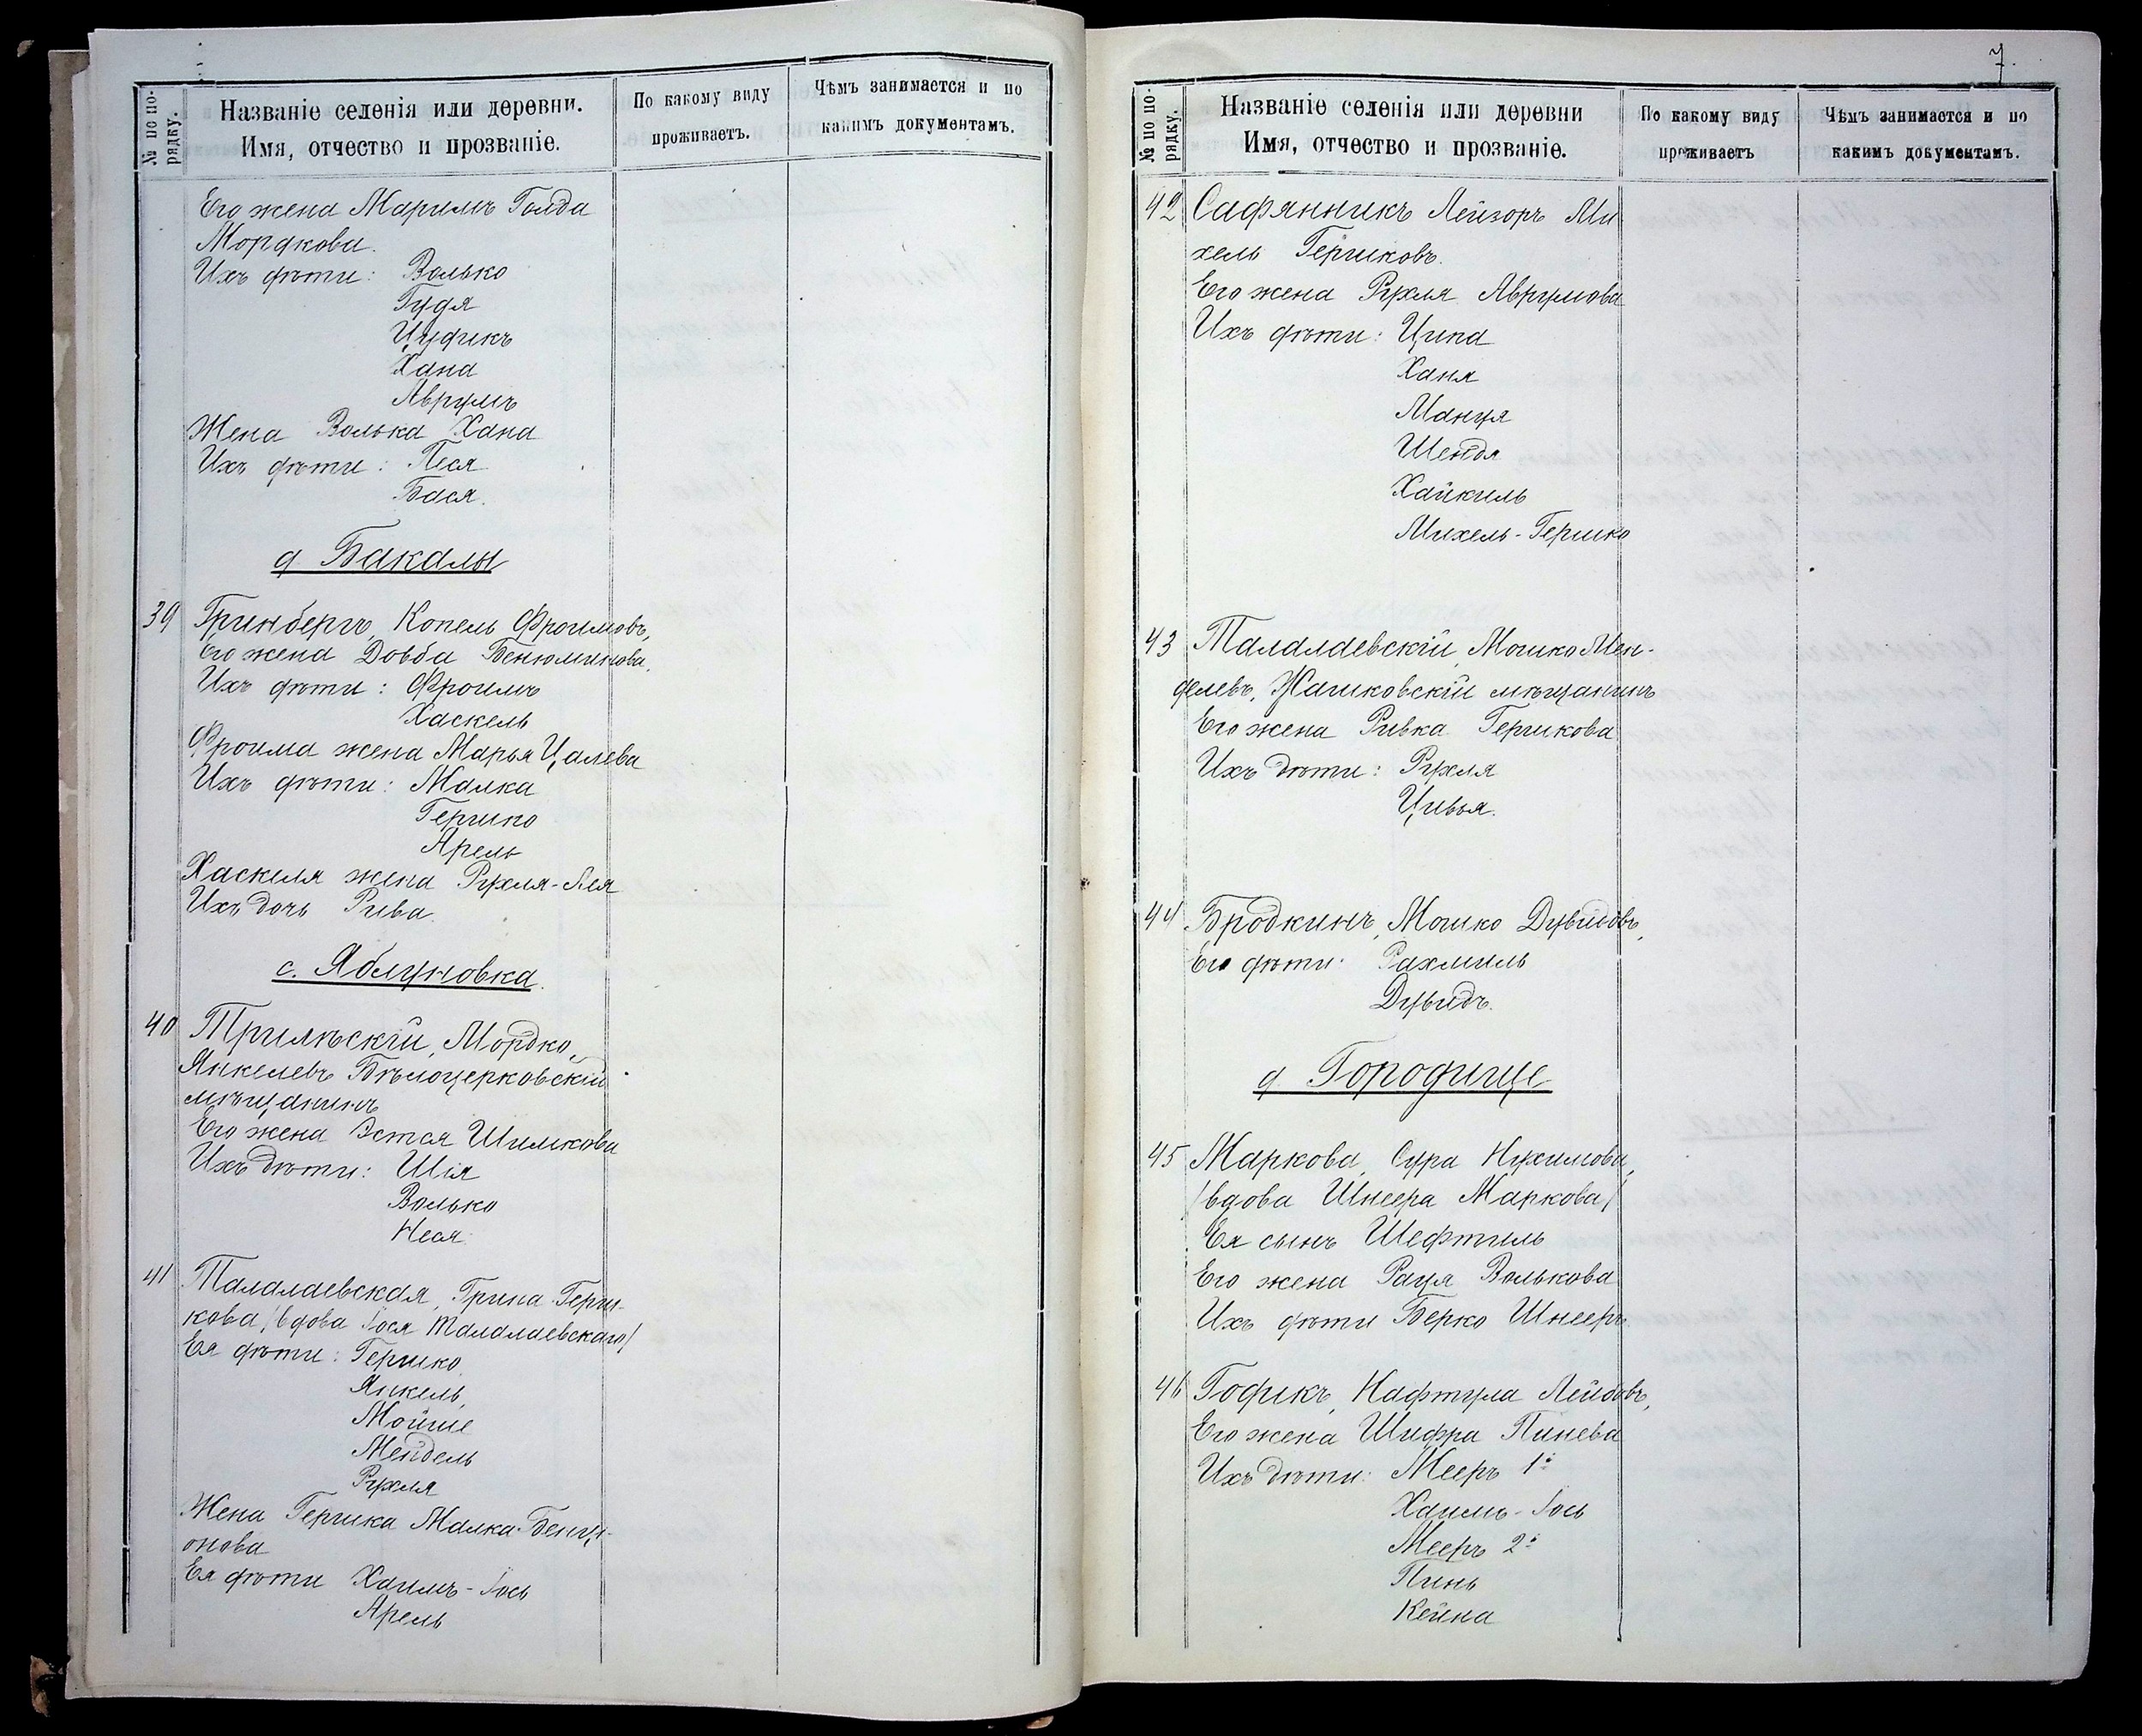 № по по-
рядку.
Названіе селенія или деревни.
Имя, отчество и прозваніе.
По какому виду
проживаетъ.
Чѣмъ занимается и по
какимъ документамъ.
Его жена Маримъ Голда
Мордкова.
Ихъ дѣти: Волько
Гудя
Цудикъ
Хана
Аврумъ
Жена Волька Хана
Ихъ дѣти: Песя
Бася.
д Бакалы
39 Гринбергъ, Копель Фроимовъ,
Его жена Довба Бенюминова.
Ихъ дѣти: Фроимъ
Хаскель
Фроима жена Марья Цалева
Ихъ дѣти: Малка
Гершко
Арель
Хаскеля жена Рухля-Лея
Ихъ дочь Рива.
с. Яблуновка.
40 Трилѣскій, Мордко,
Янкелевъ Бѣлоцерковскій
мѣщанинъ
Его жена Эстся Шимкова
Ихъ дѣти: Шія
Волько
Неся
41 Талалаевская, Грина Герш-
кова /вдова Іося Талалаевскаго/
Ея дѣти: Гершко
Янкель,
Мойше
Мендель
Рухля
Жена Гершка Малка Бенци-
онова
Ея дѣти Хаимъ-Іось
Арель
7.
№ по по-
рядку.
Названіе селенія или деревни
Имя, отчество и прозваніе.
По какому виду
проживаетъ
Чѣмъ занимается и по
какимъ документамъ.
42 Сафянникъ Лейзоръ Ми-
хель Гершковъ.
Его жена Рухля Аврумова
Ихъ дѣти: Ципа
Ханя
Манця
Шендя
Хайкель
Михель-Гершко
43 Талалаевскій, Мошко Мен-
делевъ, Жашковскій мѣщанинъ
Его жена Ривка Гершкова
Ихъ дѣти: Рухля
Цивья.
44 Бродкинъ, Мошко Дувидовъ,
Его дѣти: Рахмиль
Дувидъ.
д. Городище
45 Маркова, Сура Нухимова,
/вдова Шнеера Маркова/
Ея сынъ Шефтель
Его жена Раця Волькова
Ихъ дѣти Берко Шнееръ
46 Гофикъ, Нафтула Лейбовъ,
Его жена Шифра Пинева
Ихъ дѣти: Мееръ 1й
Хаимъ-Іось
Мееръ 2й
Пинь
Кейна